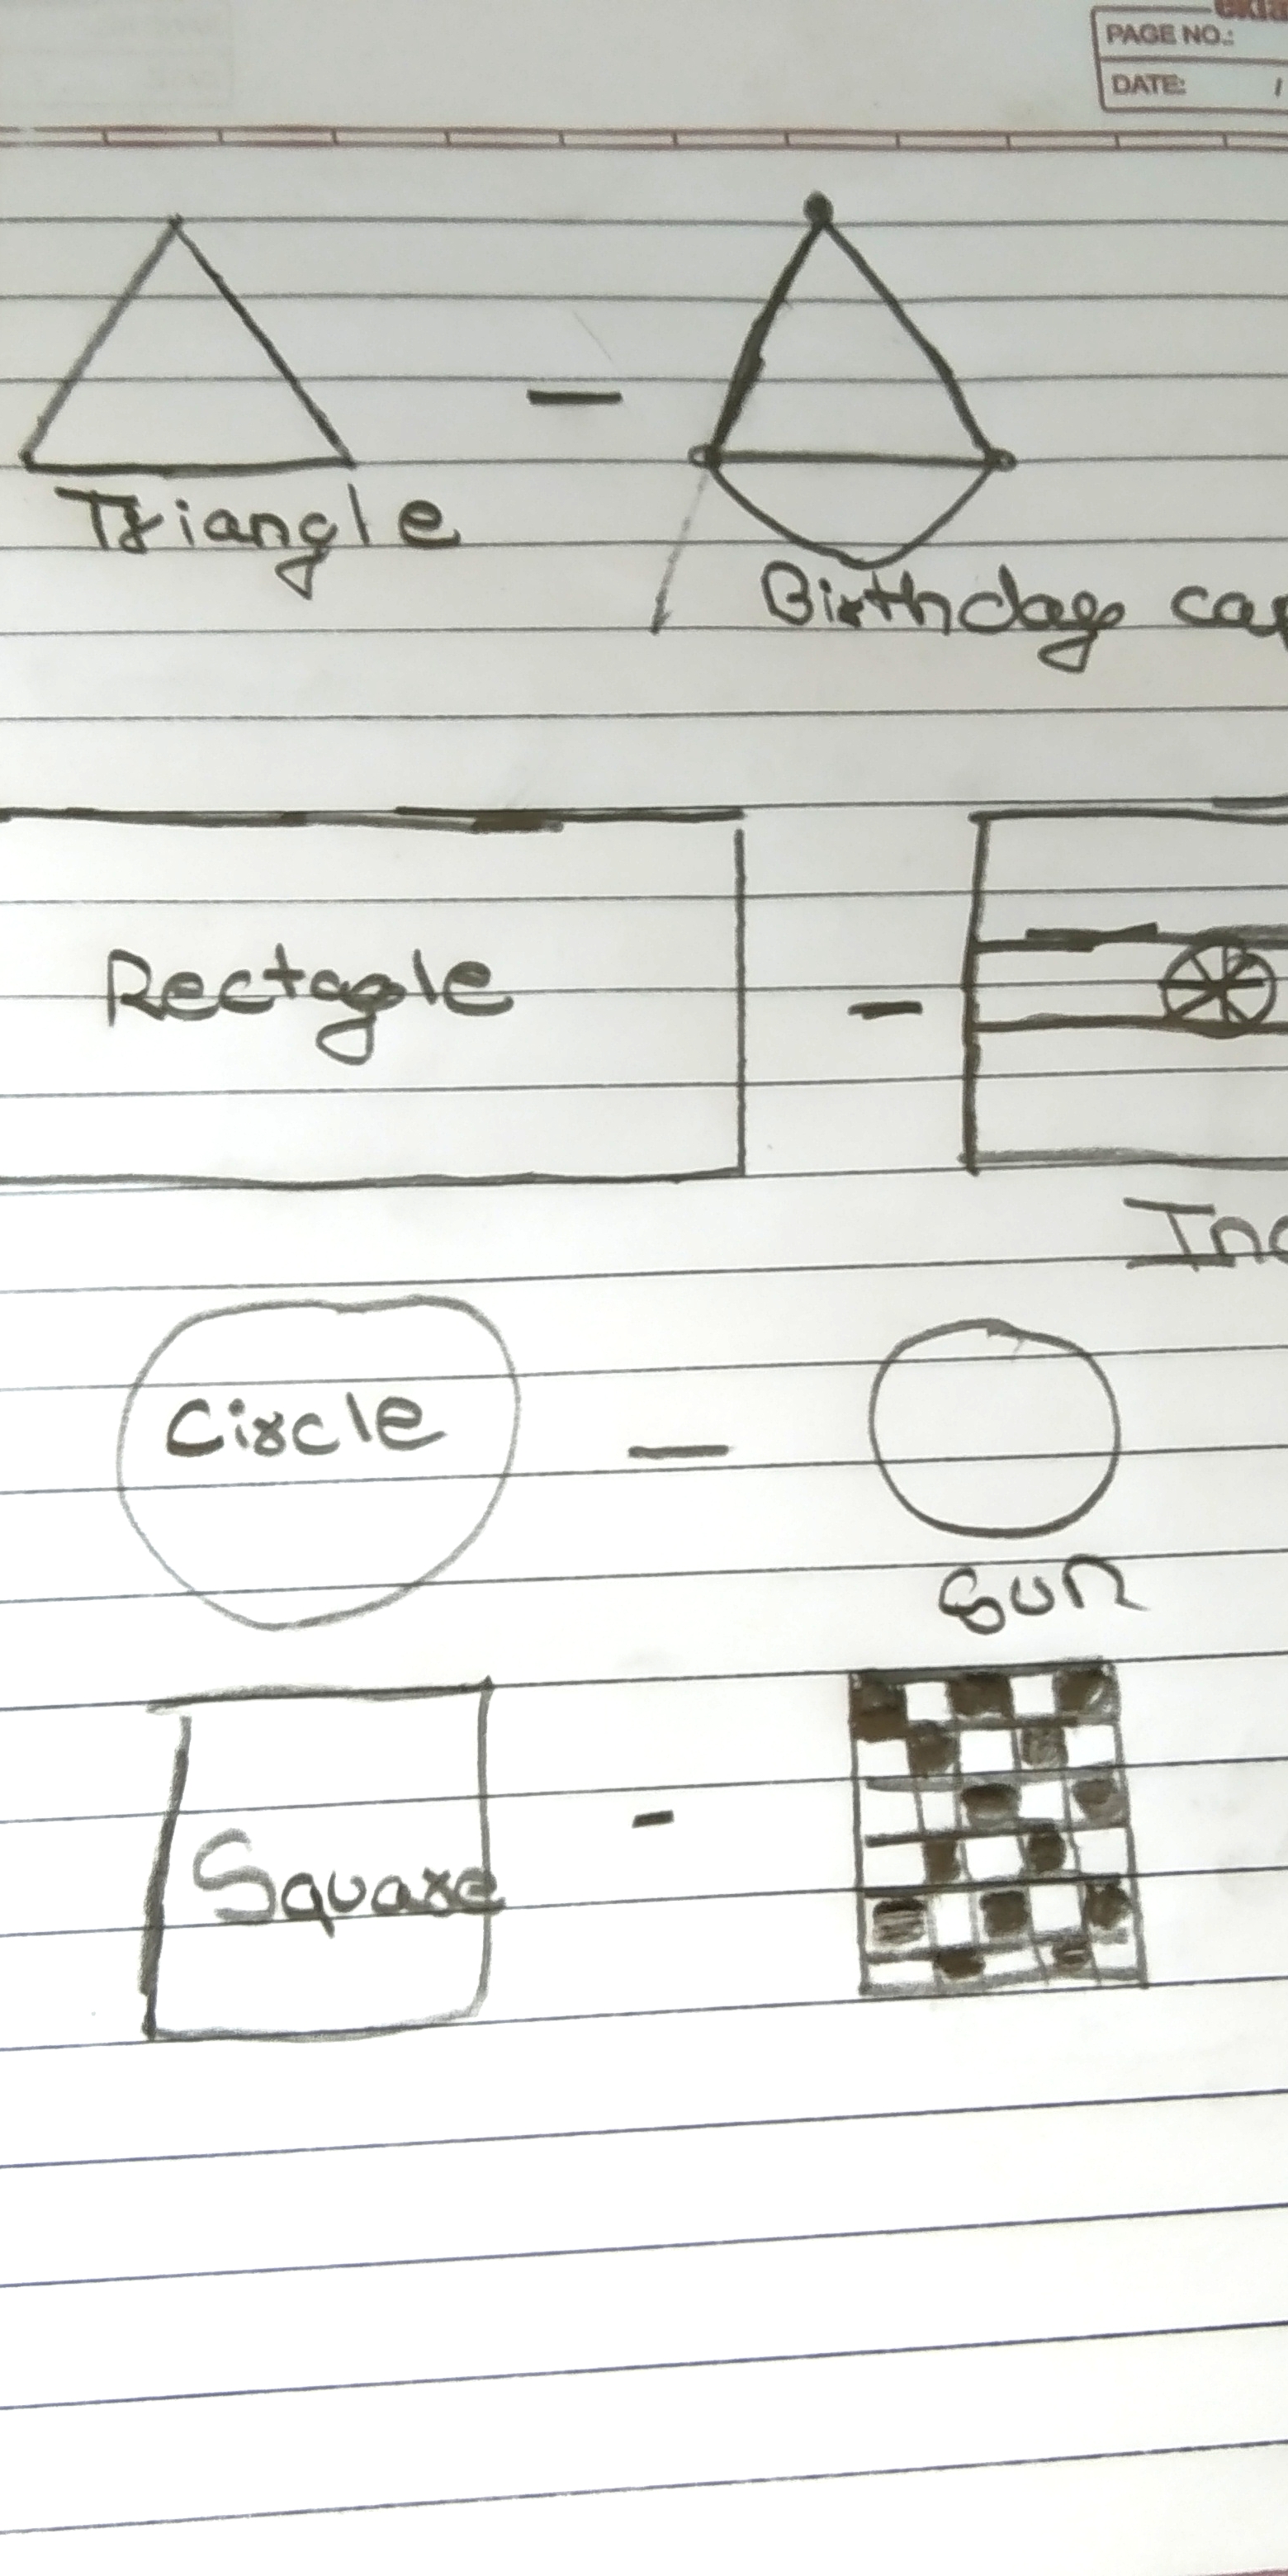 PAGE NO.:
DATE: /
Triangle
Birthday cap
Rectagle
Circle
Sun
Square